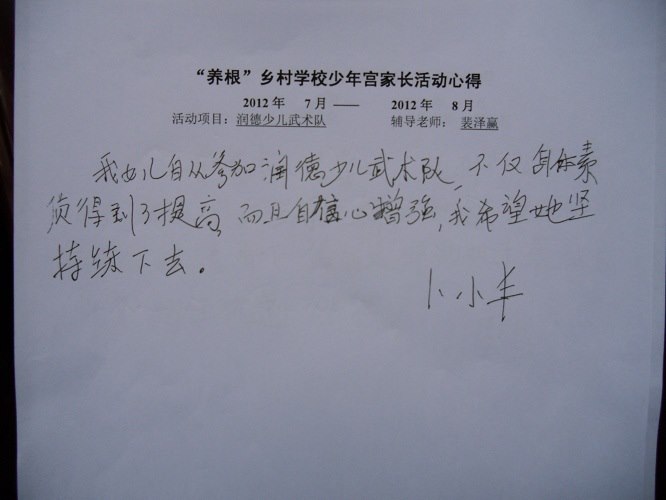 “养根”乡村学校少年宫家长活动心得
2012 年 7 月 —— 2012 年 8 月
活动项目：润德少儿武术队 辅导老师：裴泽赢
我女儿自从参加润德少儿武术队，不仅身体素
质得到了提高，而且自信心增强，我希望她坚
持练下去。
卜小丰